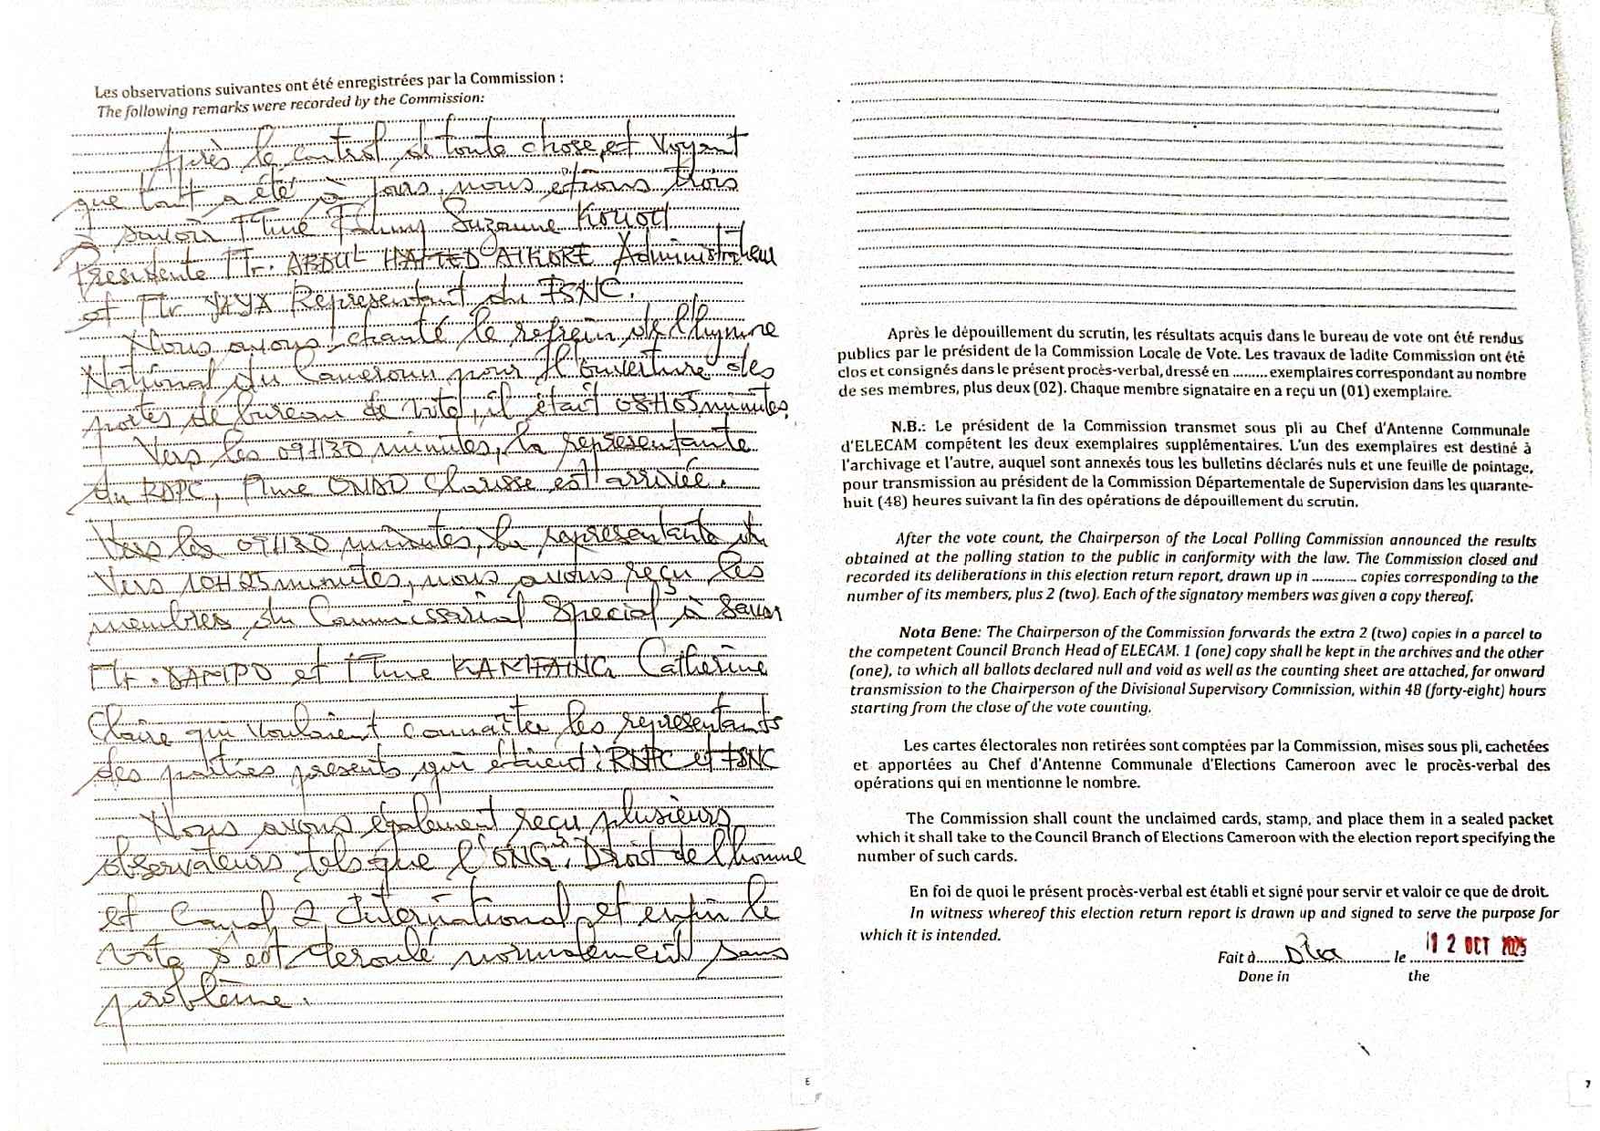 Les observations suivantes ont été enregistrées par la Commission :
The following remarks were recorded by the Commission:
Après le control de toute chose, et voyant
que tout a été à jours, nous étions trois
à savoir Mme Suzanne
Presidente Mr. ABDUL Administrateur
et Mr YAYA Representant du FSNC.
Nous avons chanté le refrein de l'hymne
National du Cameroun pour l'ouverture des
portes de bureau de vote, il était 08H05minutes,
Vers les 09H30 minutes, la representante
du RDPC, Mme Clarisse est arrivée.
Vers les 09H30 minutes, la representante du
Vers 10H25minutes, nous avons reçu les
membres du Commissariat Special à Savoir
Mr. et Mme Catherine
Claire qui voulaient connaître les representants
des parties presents qui étaient: RDPC et FSNC
Nous avons également reçu plusieurs
observateurs tels que l'"ONG". Droit de l'homme
et Canal 2 International, et enfin le
vote s'est deroulé normalement sans
problème.
E
Après le dépouillement du scrutin, les résultats acquis dans le bureau de vote ont été rendus
publics par le président de la Commission Locale de Vote. Les travaux de ladite Commission ont été
clos et consignés dans le présent procès-verbal, dressé en ......... exemplaires correspondant au nombre
de ses membres, plus deux (02). Chaque membre signataire en a reçu un (01) exemplaire.
N.B.: Le président de la Commission transmet sous pli au Chef d'Antenne Communale
d'ELECAM compétent les deux exemplaires supplémentaires. L'un des exemplaires est destiné à
l'archivage et l'autre, auquel sont annexés tous les bulletins déclarés nuls et une feuille de pointage,
pour transmission au président de la Commission Départementale de Supervision dans les quarante-
huit (48) heures suivant la fin des opérations de dépouillement du scrutin.
After the vote count, the Chairperson of the Local Polling Commission announced the results
obtained at the polling station to the public in conformity with the law. The Commission closed and
recorded its deliberations in this election return report, drawn up in ........... copies corresponding to the
number of its members, plus 2 (two). Each of the signatory members was given a copy thereof.
Nota Bene: The Chairperson of the Commission forwards the extra 2 (two) copies in a parcel to
the competent Council Branch Head of ELECAM. 1 (one) copy shall be kept in the archives and the other
(one), to which all ballots declared null and void as well as the counting sheet are attached, for onward
transmission to the Chairperson of the Divisional Supervisory Commission, within 48 (forty-eight) hours
starting from the close of the vote counting.
Les cartes électorales non retirées sont comptées par la Commission, mises sous pli, cachetées
et apportées au Chef d'Antenne Communale d'Elections Cameroon avec le procès-verbal des
opérations qui en mentionne le nombre.
The Commission shall count the unclaimed cards, stamp, and place them in a sealed packet
which it shall take to the Council Branch of Elections Cameroon with the election report specifying the
number of such cards.
En foi de quoi le présent procès-verbal est établi et signé pour servir et valoir ce que de droit.
In witness whereof this election return report is drawn up and signed to serve the purpose for
which it is intended.
Fait à...... Dla ........... le ... 12 OCT 2025
Done in the
7